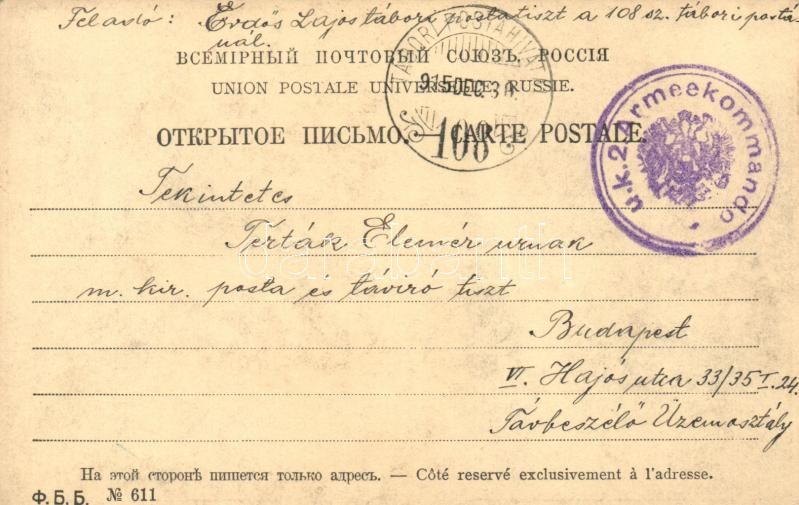 Feladó: Erdős Lajos tábori postatiszt a 108 sz. tábori postá
nál.
ВСЕМІРНЫЙ ПОЧТОВЫЙ СОЮЗЪ. РОССІЯ
UNION POSTALE UNIVERSELLE. RUSSIE.
TÁBORI POSTAHIVATAL
915 DEC. 3
108
u.k. 2. Armeekommando
ОТКРЫТОЕ ПИСЬМО. — CARTE POSTALE.
Tekintetes
Terták Elemér urnak
m. kir. posta és táviró tiszt
Budapest
VI. Hajós utca 33/35 I. 24.
Távbeszélő Üzemosztály
darabanth
На этой сторонѣ пишется только адресъ. — Côté reservé exclusivement à l'adresse.
Ф. Б. Б. № 611